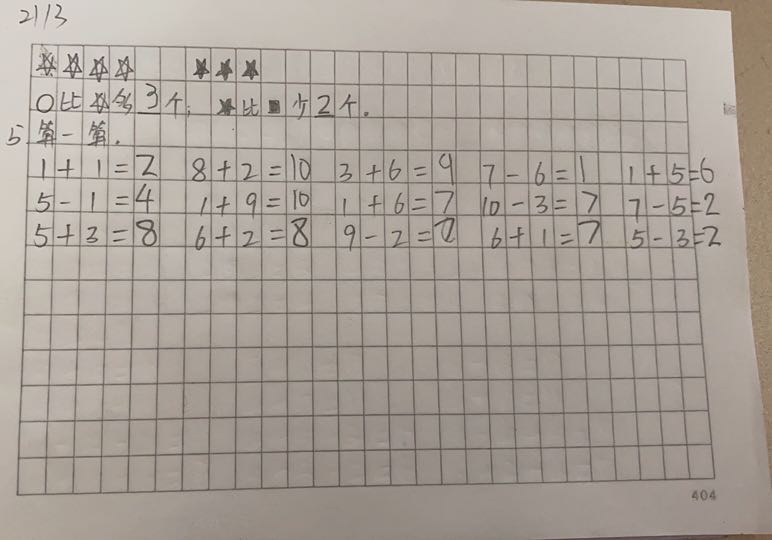 21/3
☆☆☆☆ ★★★
○比☆多3个; ★比■少2个.
5 算一算.
1+1=2 8+2=10 3+6=9 7-6=1 1+5=6
5-1=4 1+9=10 1+6=7 10-3=7 7-5=2
5+3=8 6+2=8 9-2=7 6+1=7 5-3=2
404